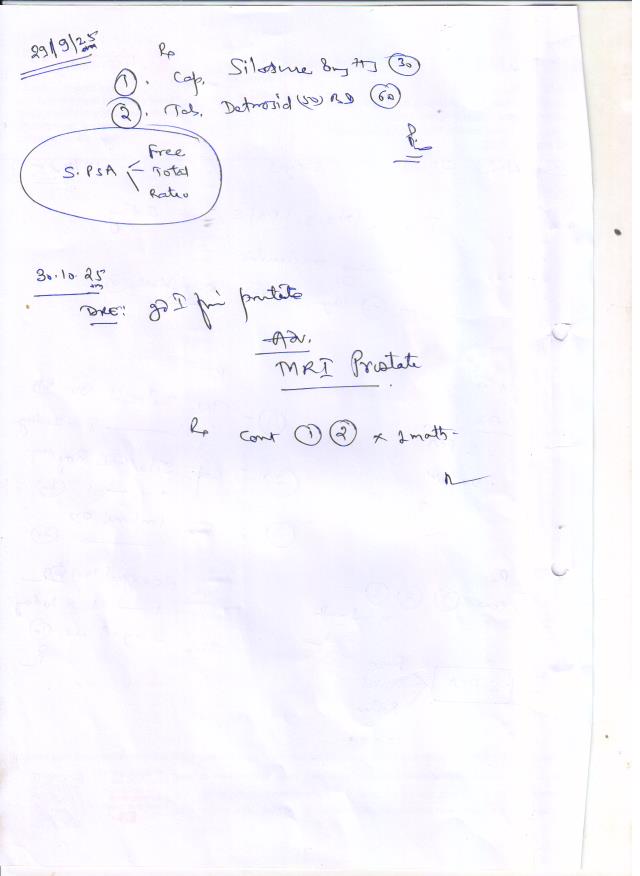 29/9/25
Rx
①. Cap. Silosure 8mg HS 30
②. Tab. Detrusid (50) BD 60
S. PSA Free
Total
Ratio
30.10.25
DRE: gd I firm prostate
Adv.
MRI Prostate
Rx Cont ① ② x 1 month